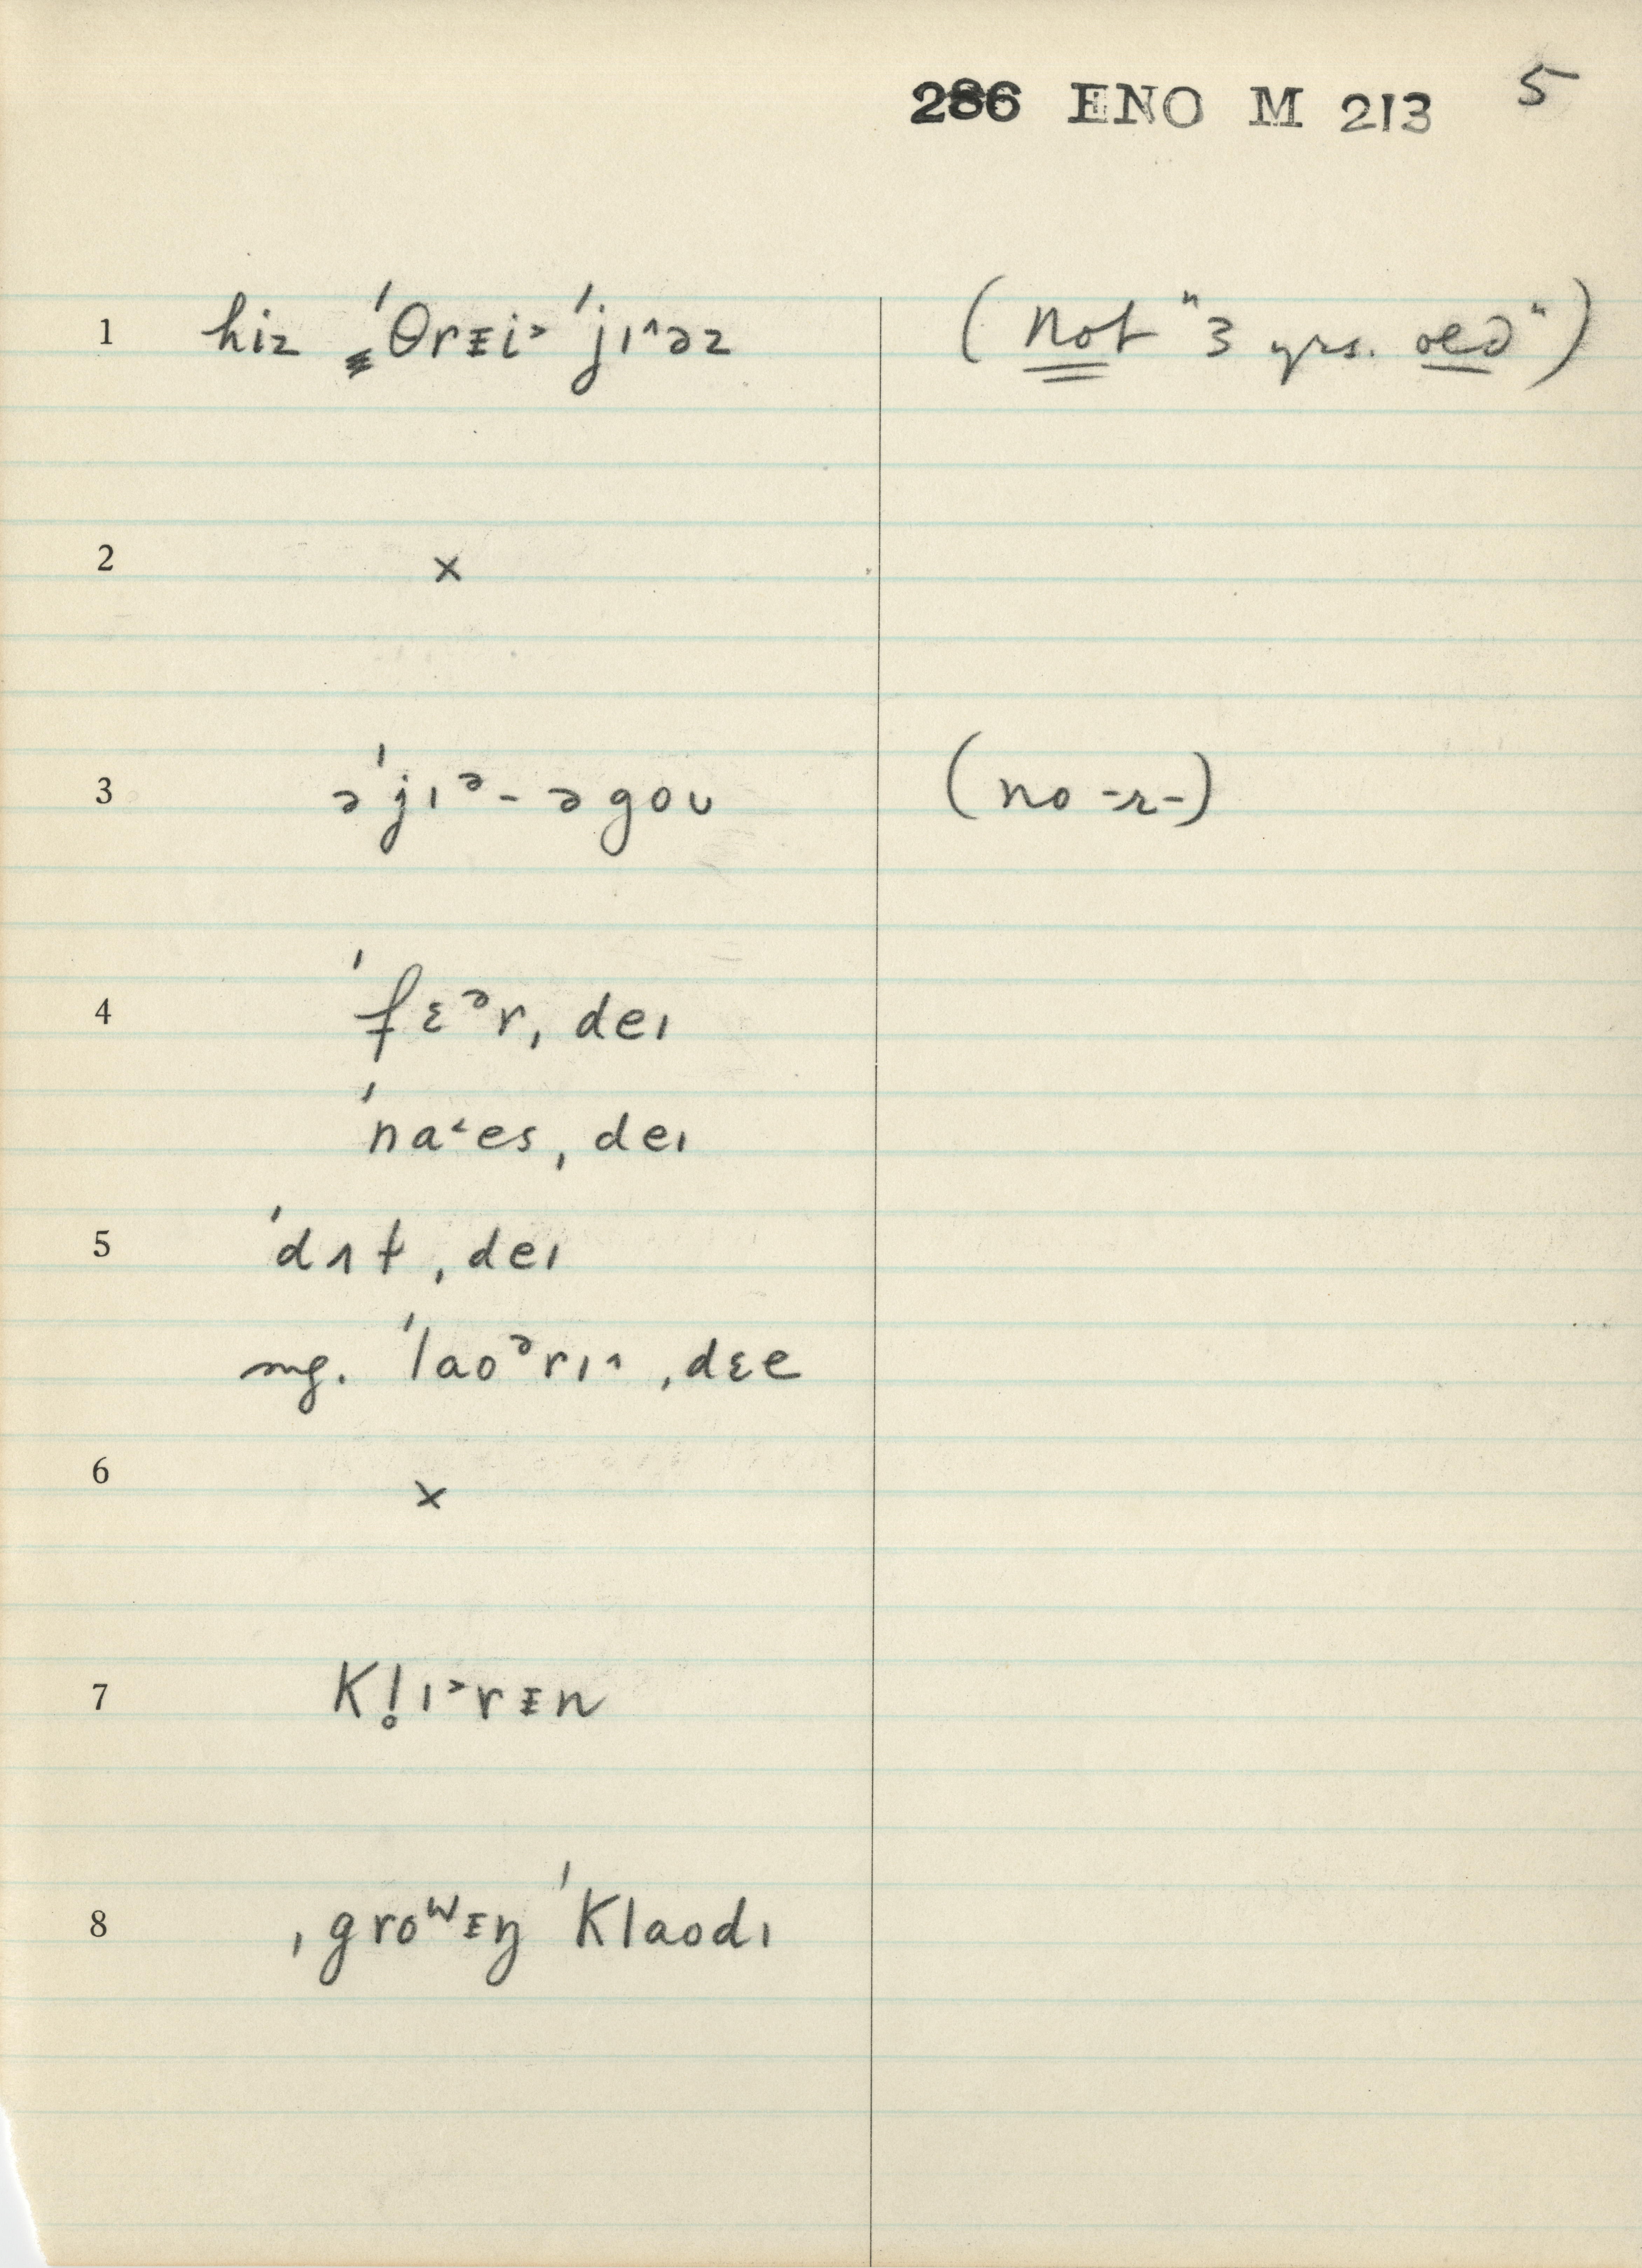 286 ENO M 213 5
1 hiz ˈθrᵻi˃ ˈjɪ˄əz (not "3 yrs. old")
2 x
3 əˈjɪᵊ-əgoʊ (no -r-)
4 ˈfɛᵊr ˌdeɪ
ˈna˂es ˌdeɪ
5 ˈdɪ̵t ˌdeɪ
ˈlaoᵊrɪ˄ ˌdɛe
6 x
7 Kl̥ɪ˃rᵻn
8 ˌgroʷᵻŋ ˈKlaodɪ